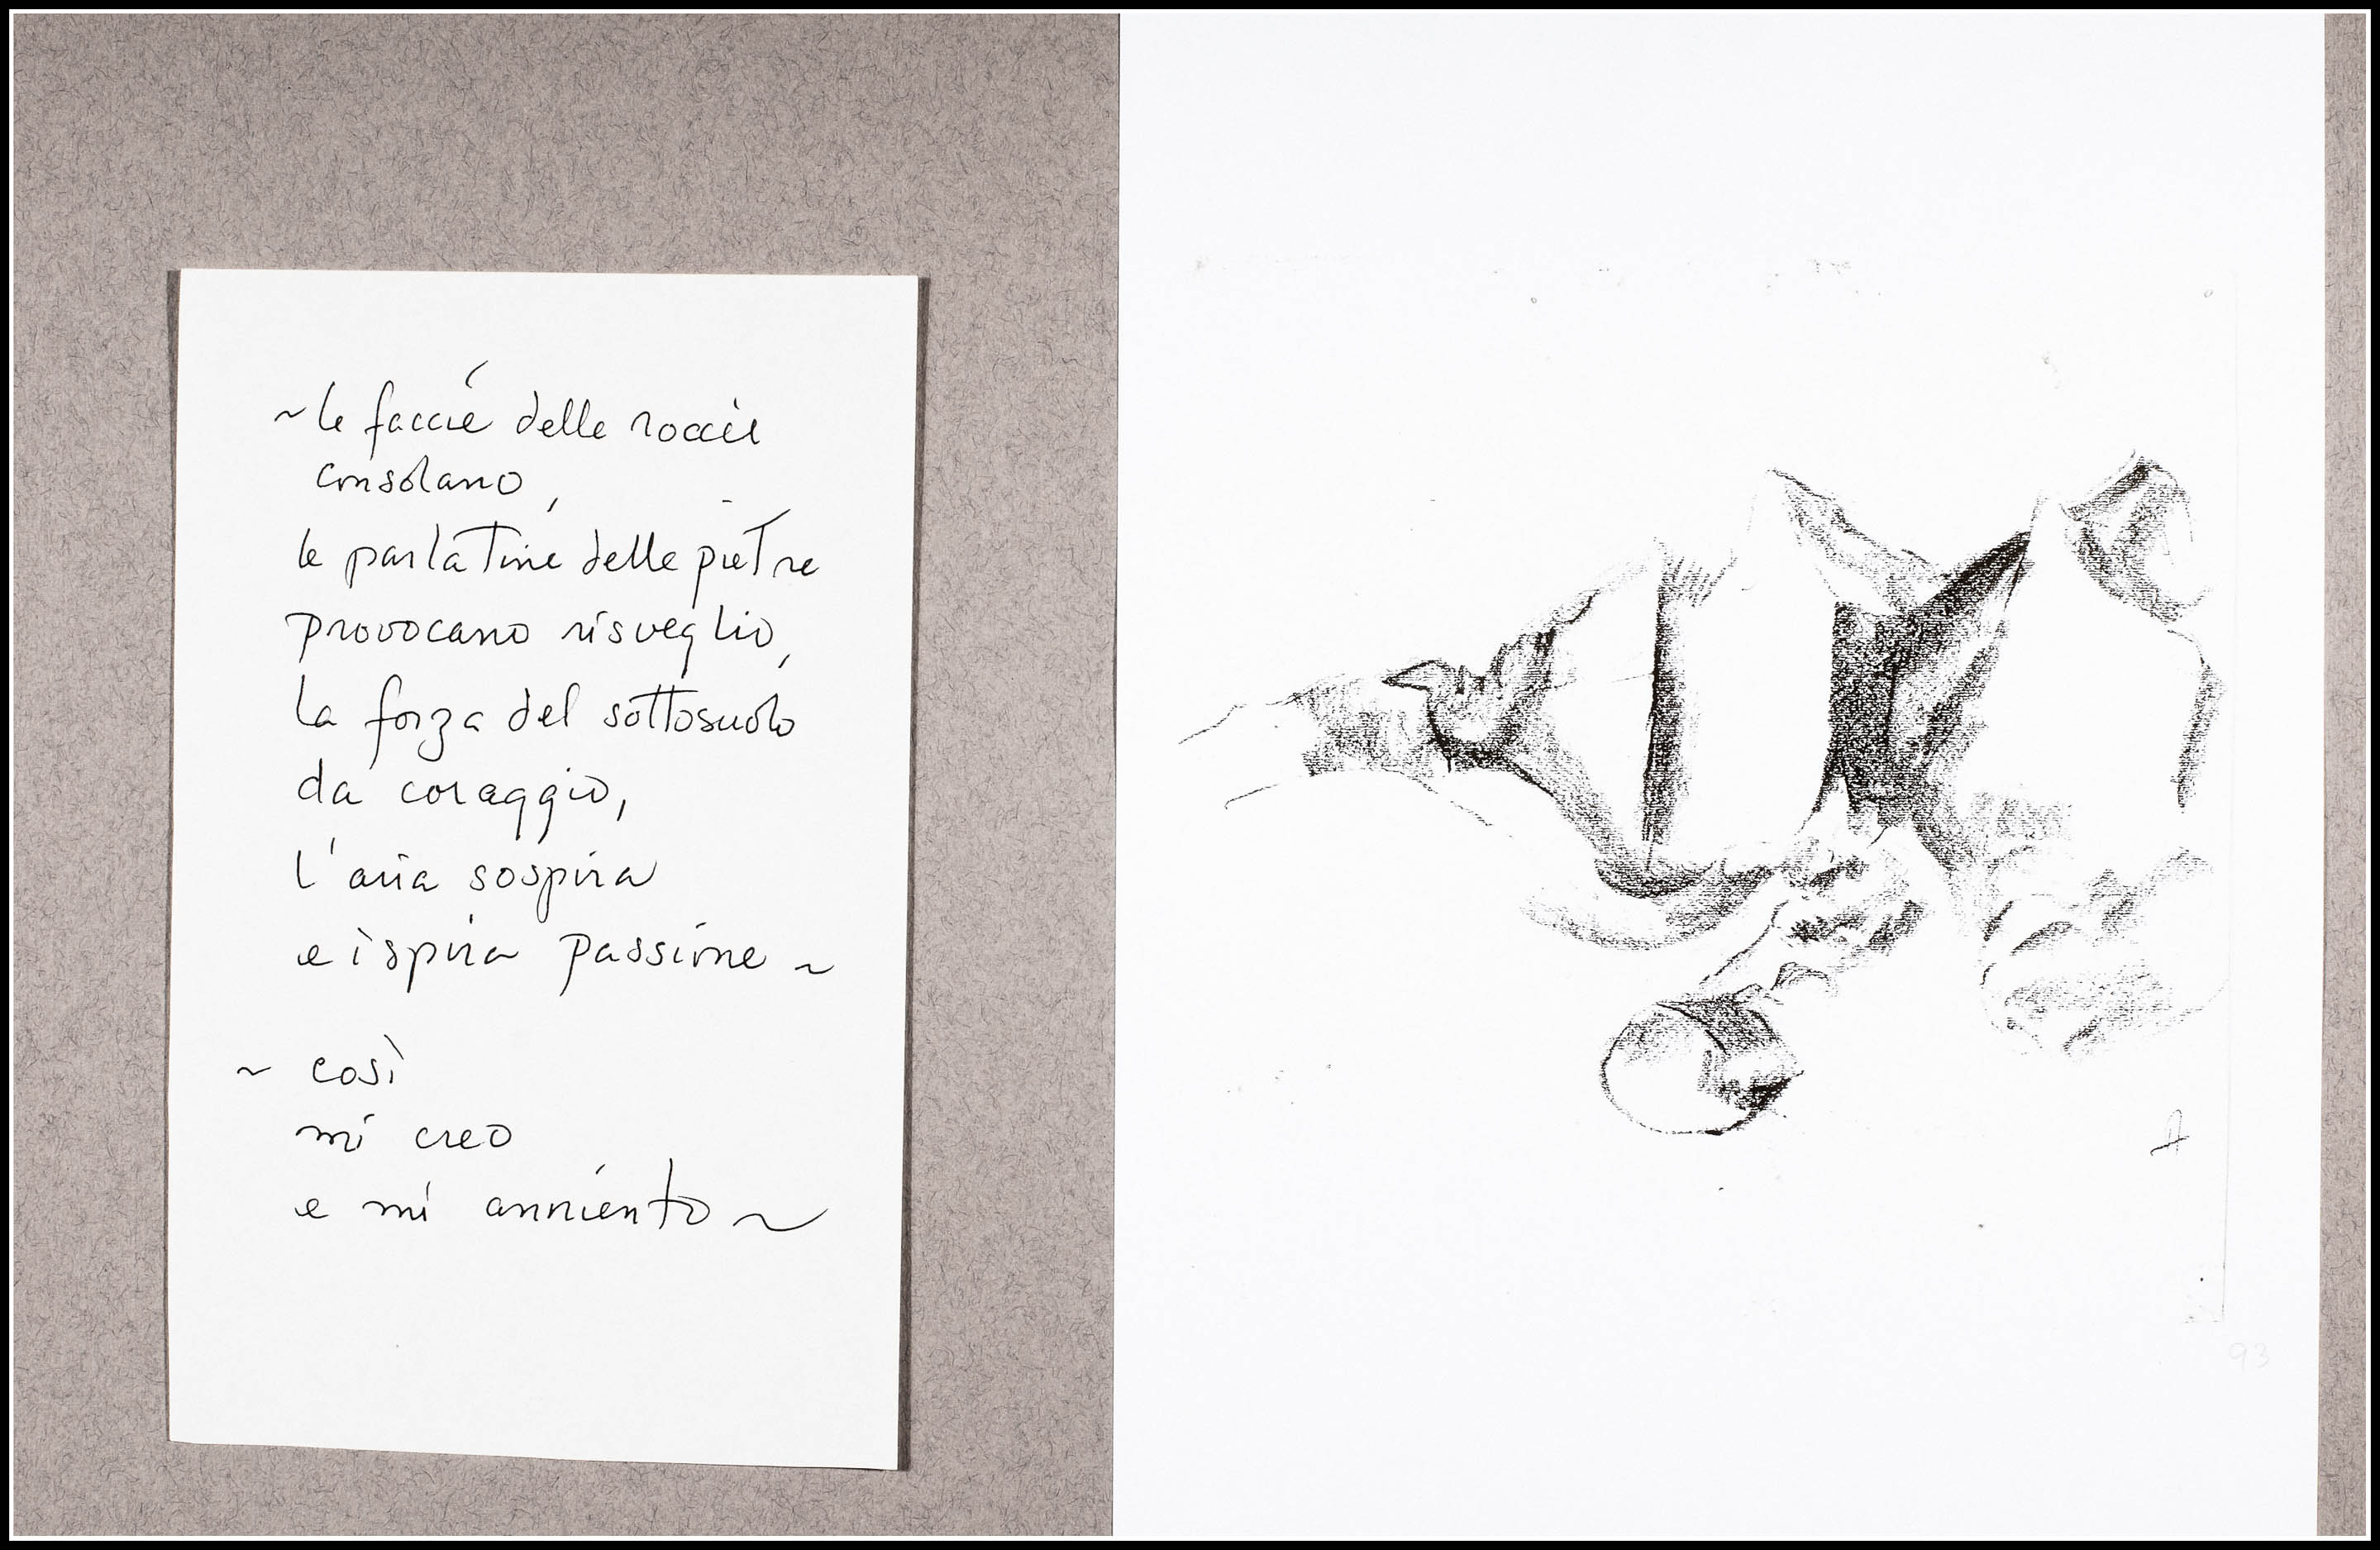 ~ le faccie delle roccie
consolano,
le parlatine delle pietre
provocano risveglio,
la forza del sottosuolo
da coraggio,
l'aria sospira
e ispira passione ~
~ così
mi creo
e mi anniento ~
A
93